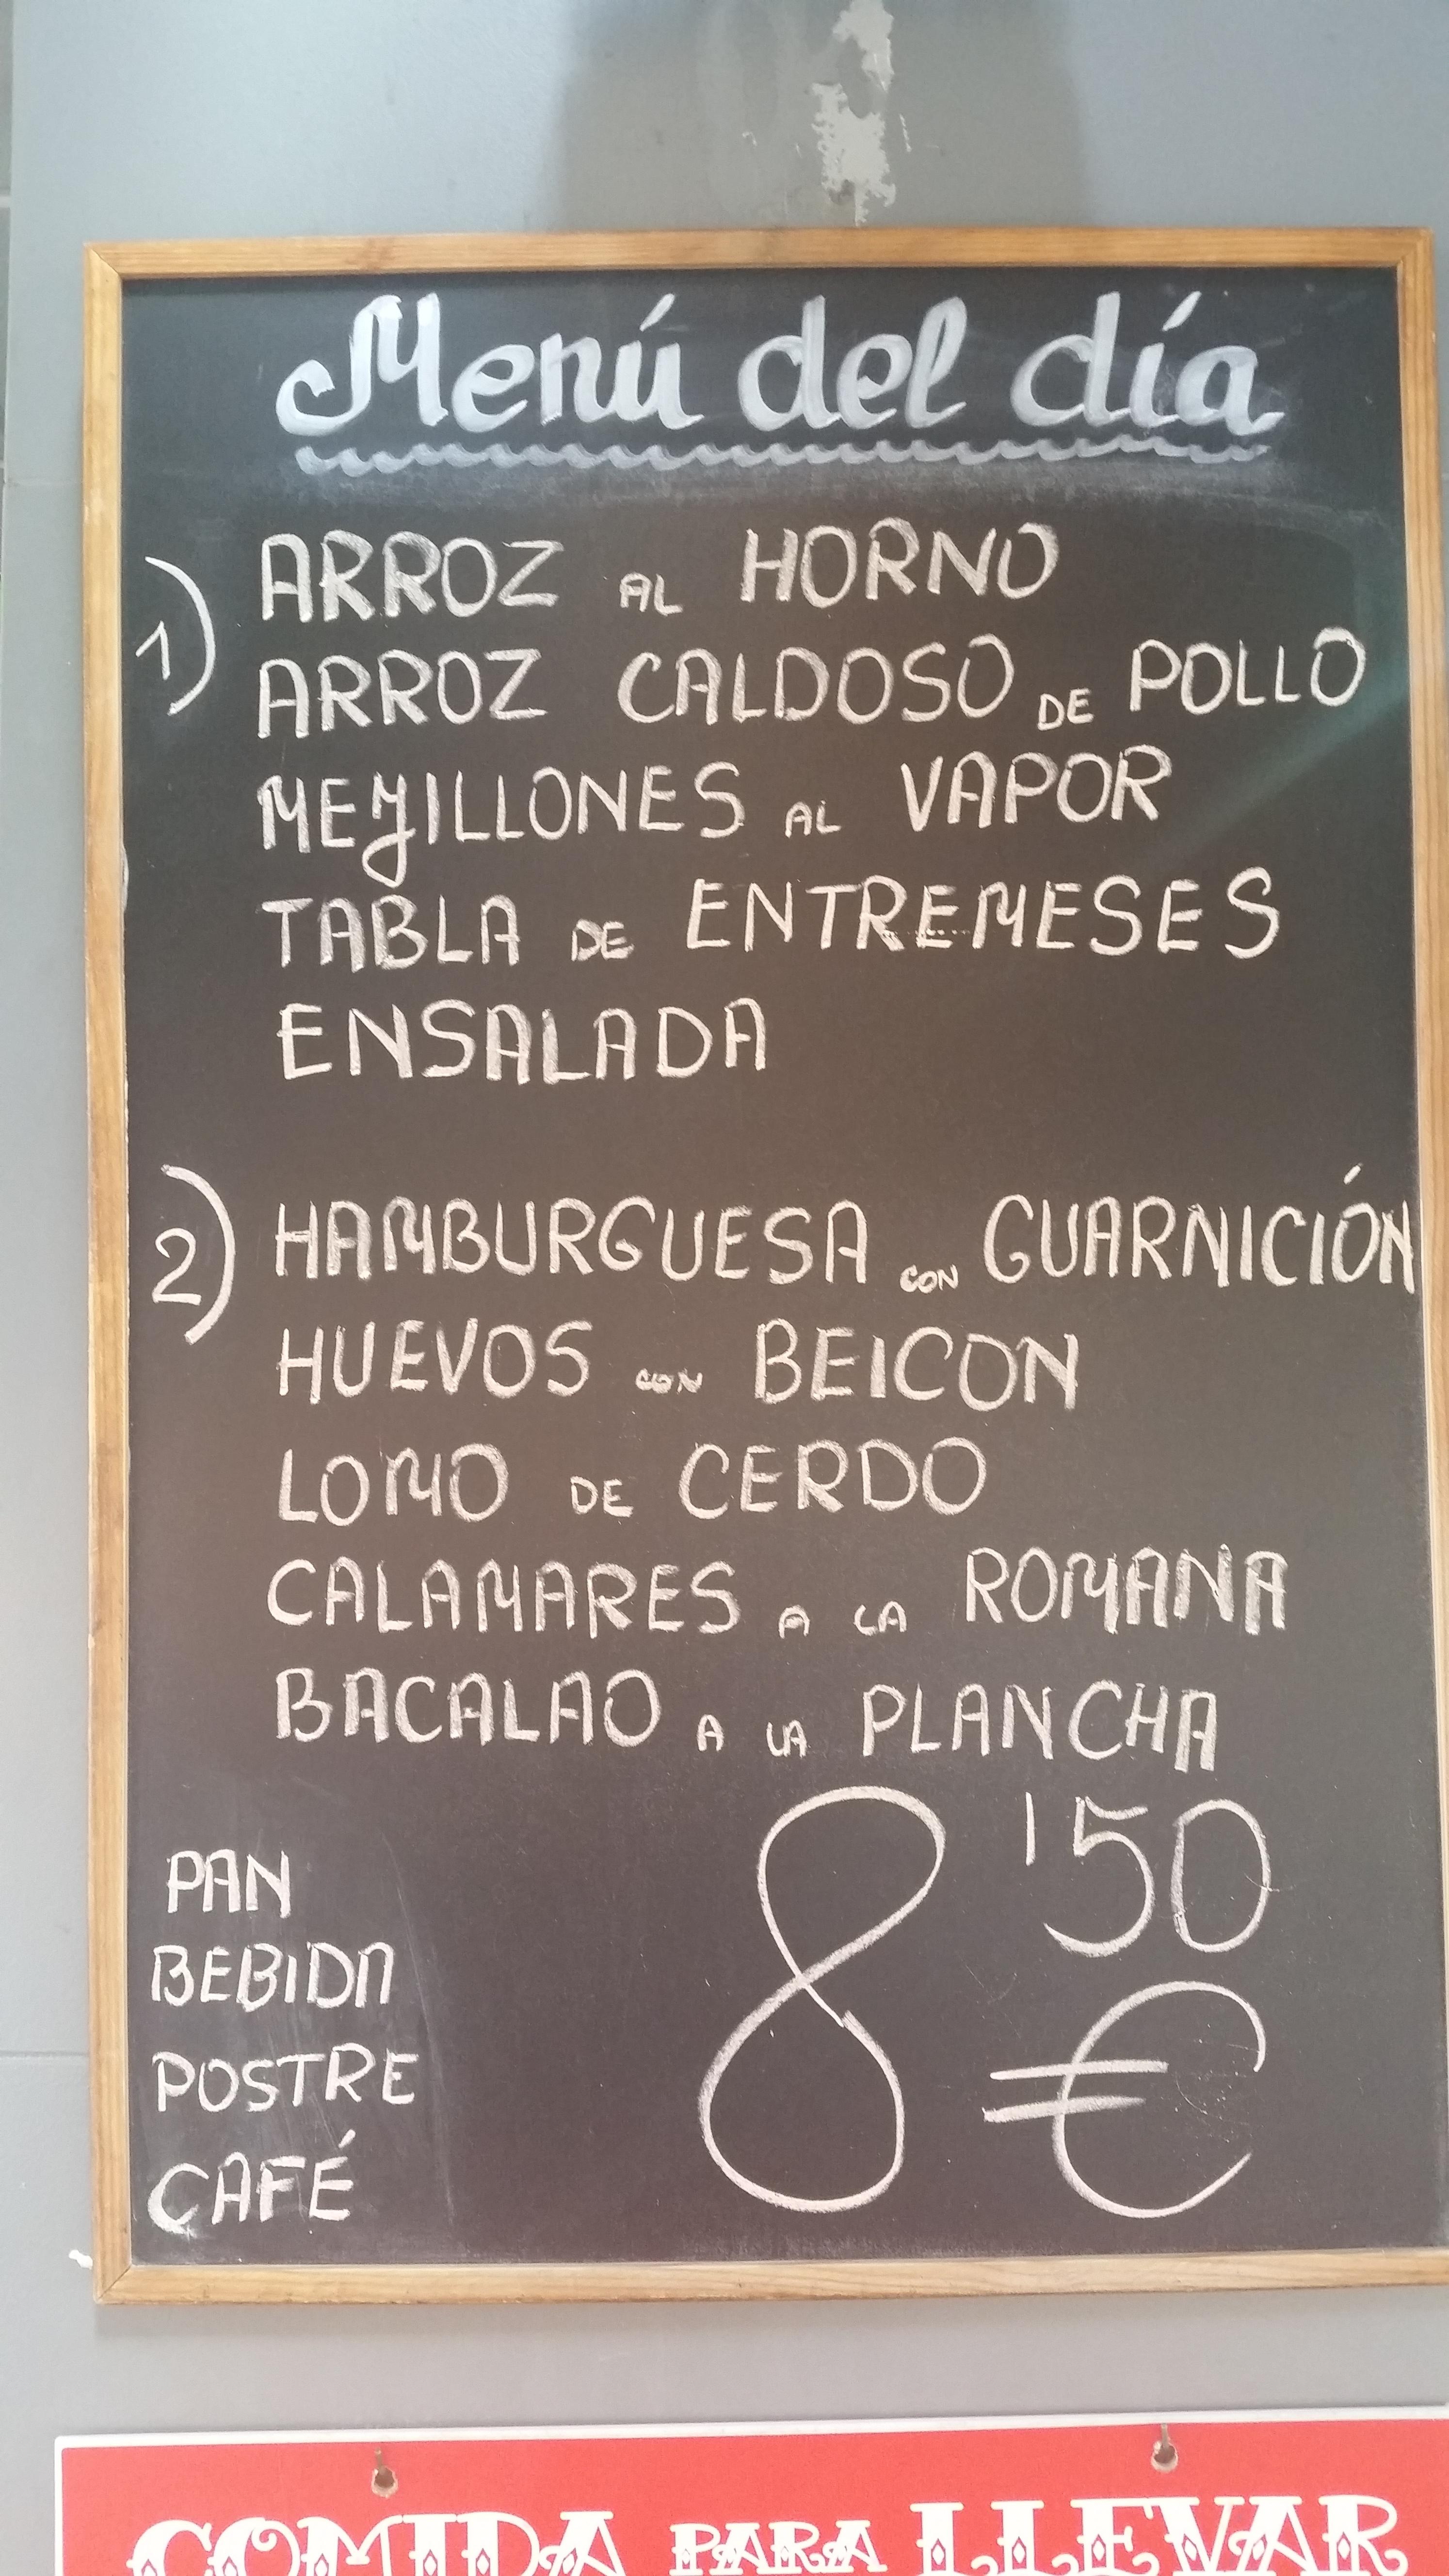 Menú del día
1) ARROZ AL HORNO
ARROZ CALDOSO DE POLLO
MEJILLONES AL VAPOR
TABLA DE ENTREMESES
ENSALADA
2) HAMBURGUESA CON GUARNICIÓN
HUEVOS CON BEICON
LOMO DE CERDO
CALAMARES A LA ROMANA
BACALAO A LA PLANCHA
8'50 €
PAN
BEBIDA
POSTRE
CAFÉ
COMIDA PARA LLEVAR